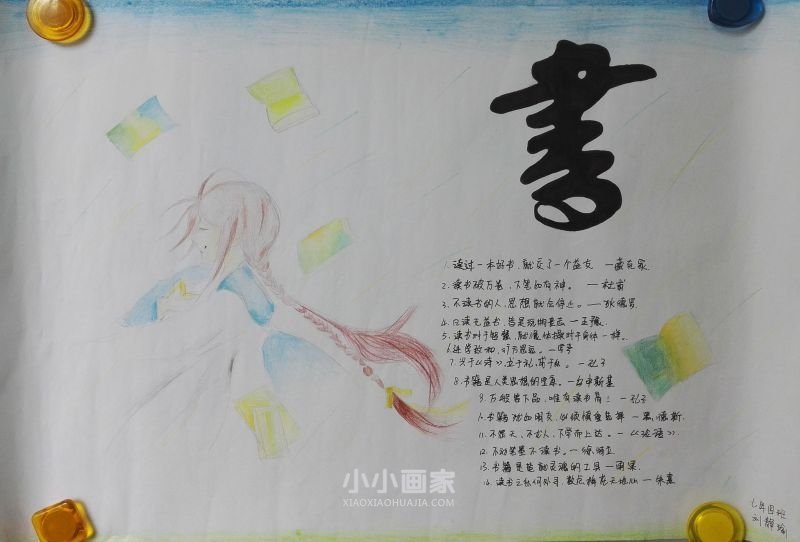 書
1. 读过一本好书,就交了一个益友 —臧克家
2. 读书破万卷,下笔如有神。 —杜甫
3. 不读书的人,思想就会停止。 —狄德罗
4. 日读无益书,皆是玩物丧志 —王豫.
5. 读书对于智慧,就像体操对于身体一样.
7. 兴于《诗》,立于礼, —孔子
8. 书籍是人类思想的宝库。—乌申斯基
9. 万般皆下品,唯有读书高! —孔子
10. 书籍 朋友,
11. 不怨天,不尤人,下学而上达。—《论语》.
12. 不动笔墨不读书。—徐特立
13. 书籍是造就灵魂的工具 —雨果
14. 读书之乐何处寻,数点梅花天地心 —朱熹
小小画家
XIAOXIAOHUAJIA.COM
七年四班
刘静瑜